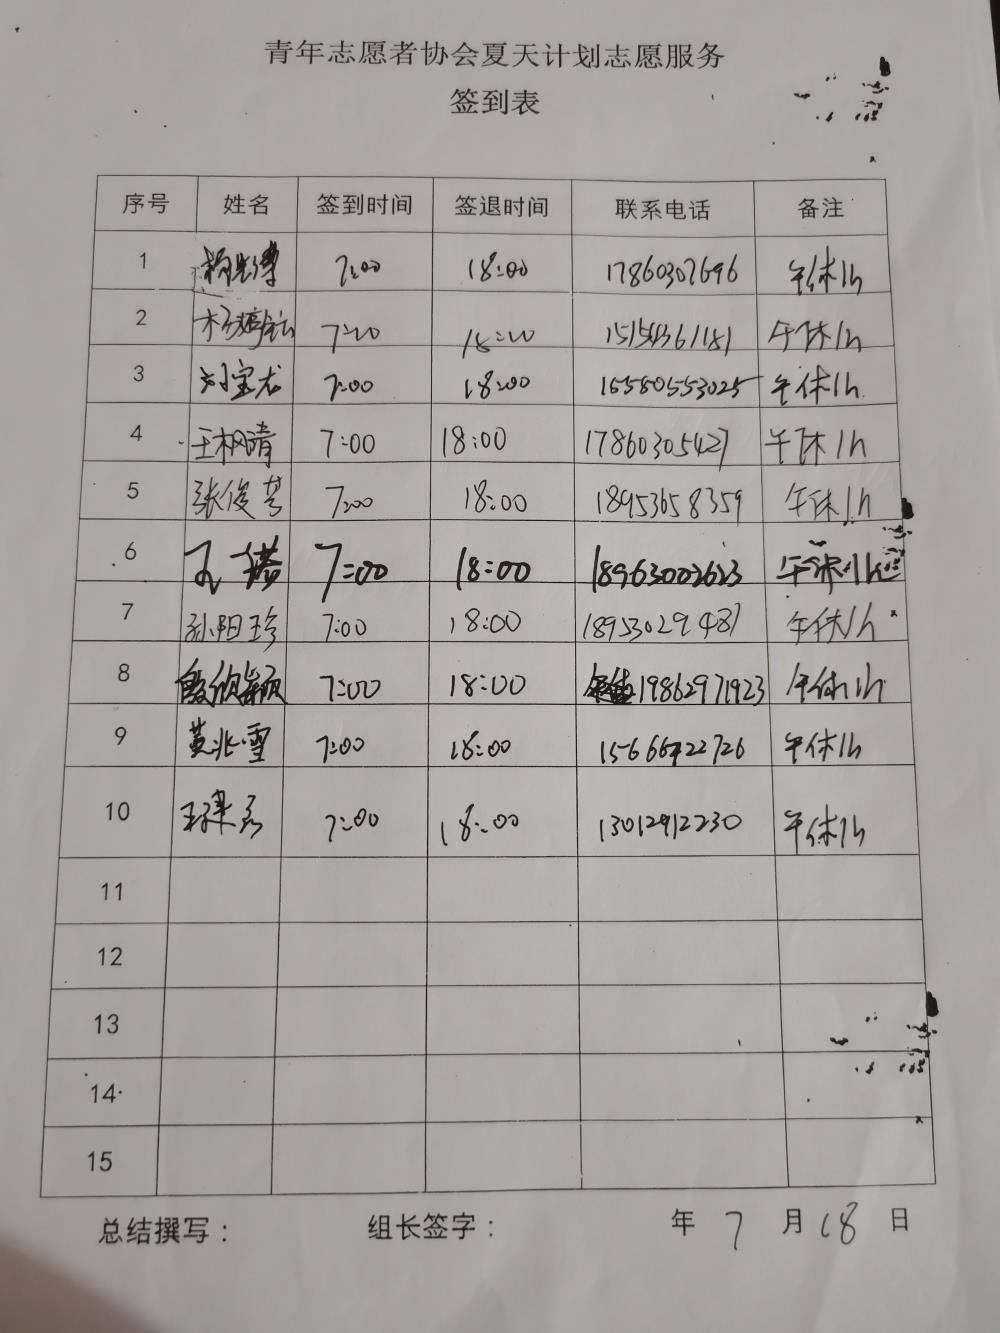 青年志愿者协会夏天计划志愿服务
签到表
序号 姓名 签到时间 签退时间 联系电话 备注
1 7:00 18:00 17860307696 午休1h
2 7:00 18:00 午休1h
3 刘宝龙 7:00 18:00 16580553025 午休1h
4 王枫晴 7:00 18:00 17860305427 午休1h
5 张俊梦 7:00 18:00 18953658359 午休1h
6 孔 7:00 18:00 18963002623 午休1h
7 孙阳珍 7:00 18:00 18953029487 午休1h
8 殷欣颖 7:00 18:00 19862971923 午休1h
9 黄兆雪 7:00 18:00 15666422726 午休1h
10 7:00 18:00 13012912230 午休1h
11
12
13
14
15
总结撰写： 组长签字： 年 7 月 18 日